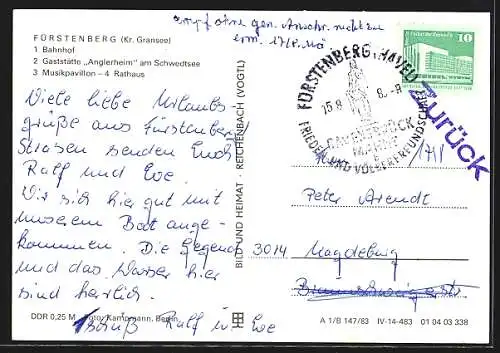 Empf ohne gen. Anschr. nicht zu
erm. 17/8. Mö
FÜRSTENBERG (Kr. Gransee)
1 Bahnhof
2 Gaststätte „Anglerheim" am Schwedtsee
3 Musikpavillon – 4 Rathaus
Viele liebe Urlaubs-
grüße aus Fürstenberg
senden Euch
Ralf und Eve
Wir sind hier gut mit
unserem Boot ange-
kommen. Die Gegend
und das Wasser hier
sind herrlich.
Tschüß Ralf u Eve
DDR 0,25 M Foto: Kampmann, Berlin
BILD UND HEIMAT · REICHENBACH (VOGTL)
10
FÜRSTENBERG, HAVEL
15.8
RAVENSBRÜCK
FRIEDEN UND VÖLKERFREUNDSCHAFT
Zurück
Peter Arendt
3014 Magdeburg
A 1/B 147/83 IV-14-483 01 04 03 338